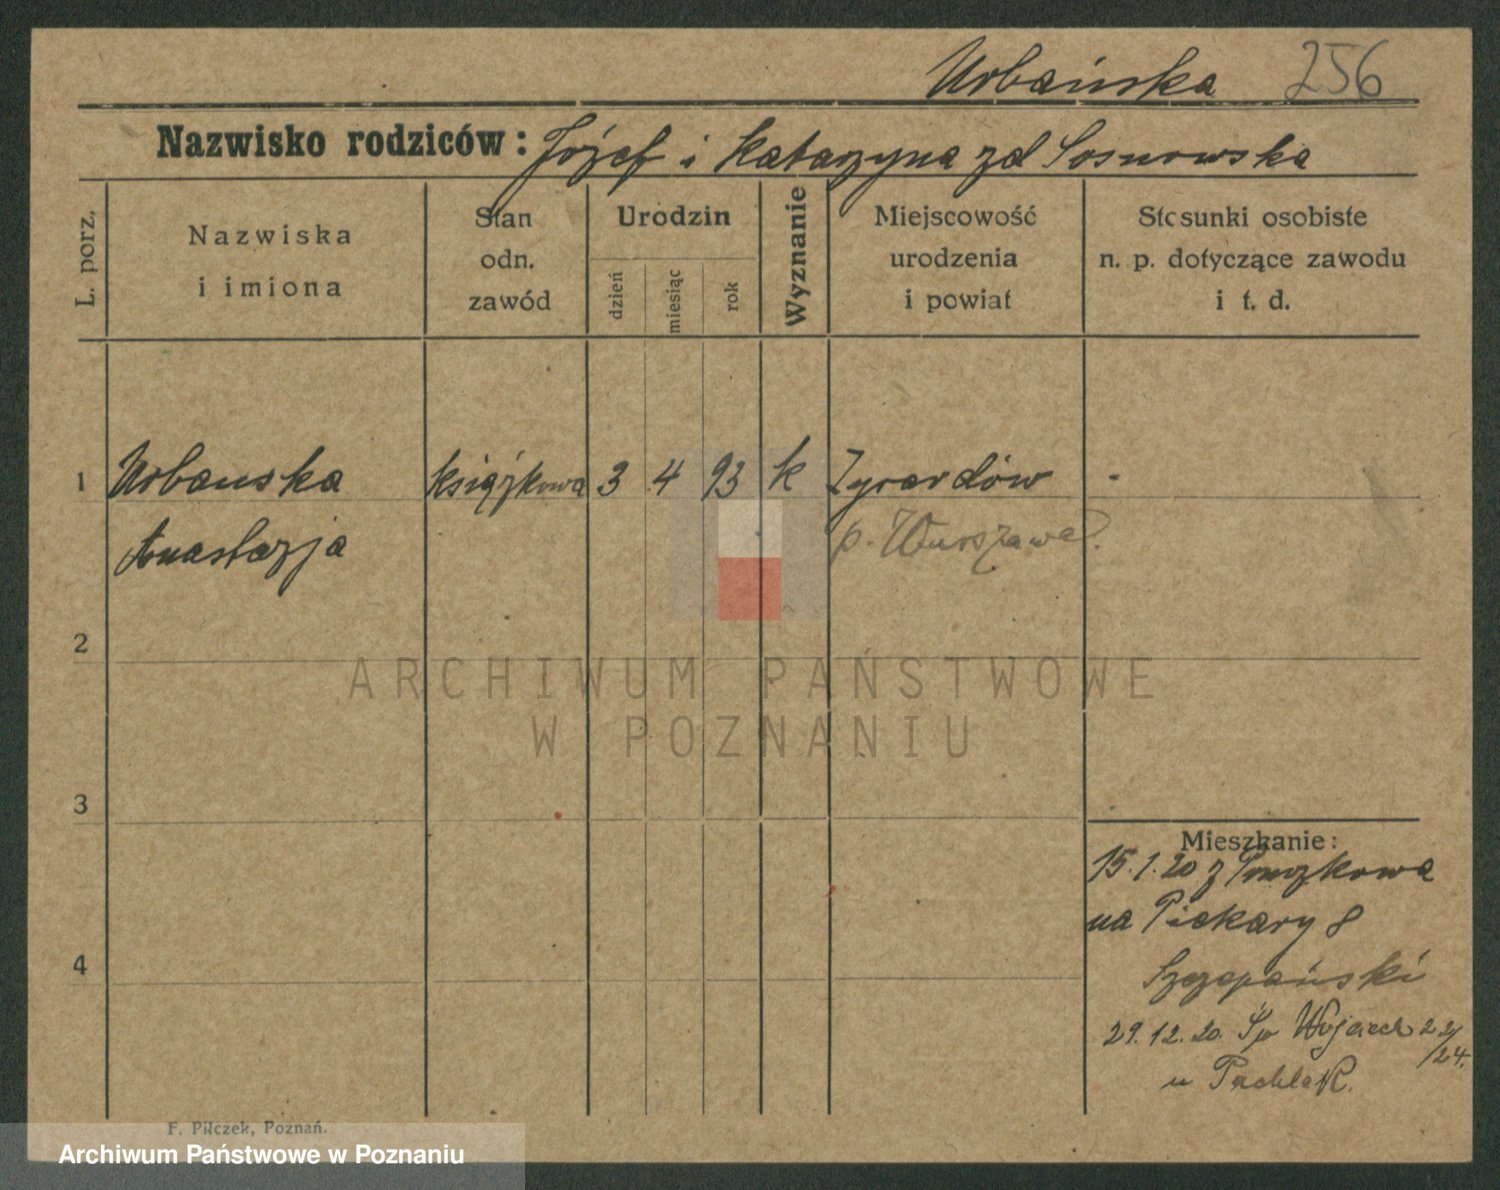 Urbańska 256
Nazwisko rodziców: Józef i Katarzyna zd Sosnowska
L. porz.
Nazwiska
i imiona
Stan
odn.
zawód
Urodzin
dzień
miesiąc
rok
Wyznanie
Miejscowość
urodzenia
i powiat
Stosunki osobiste
n. p. dotyczące zawodu
i t. d.
1 Urbanska książkowa 3 4 93 k Zyrardów -
Anastazja p. Warszawa?
2
3
4
Mieszkanie:
15.1.20 z
na Piekary 8
Szczepański
29.12.20. Śp Wojciech 22/24.
u
F. Pilczek, Poznań.
ARCHIWUM PAŃSTWOWE
W POZNANIU
Archiwum Państwowe w Poznaniu